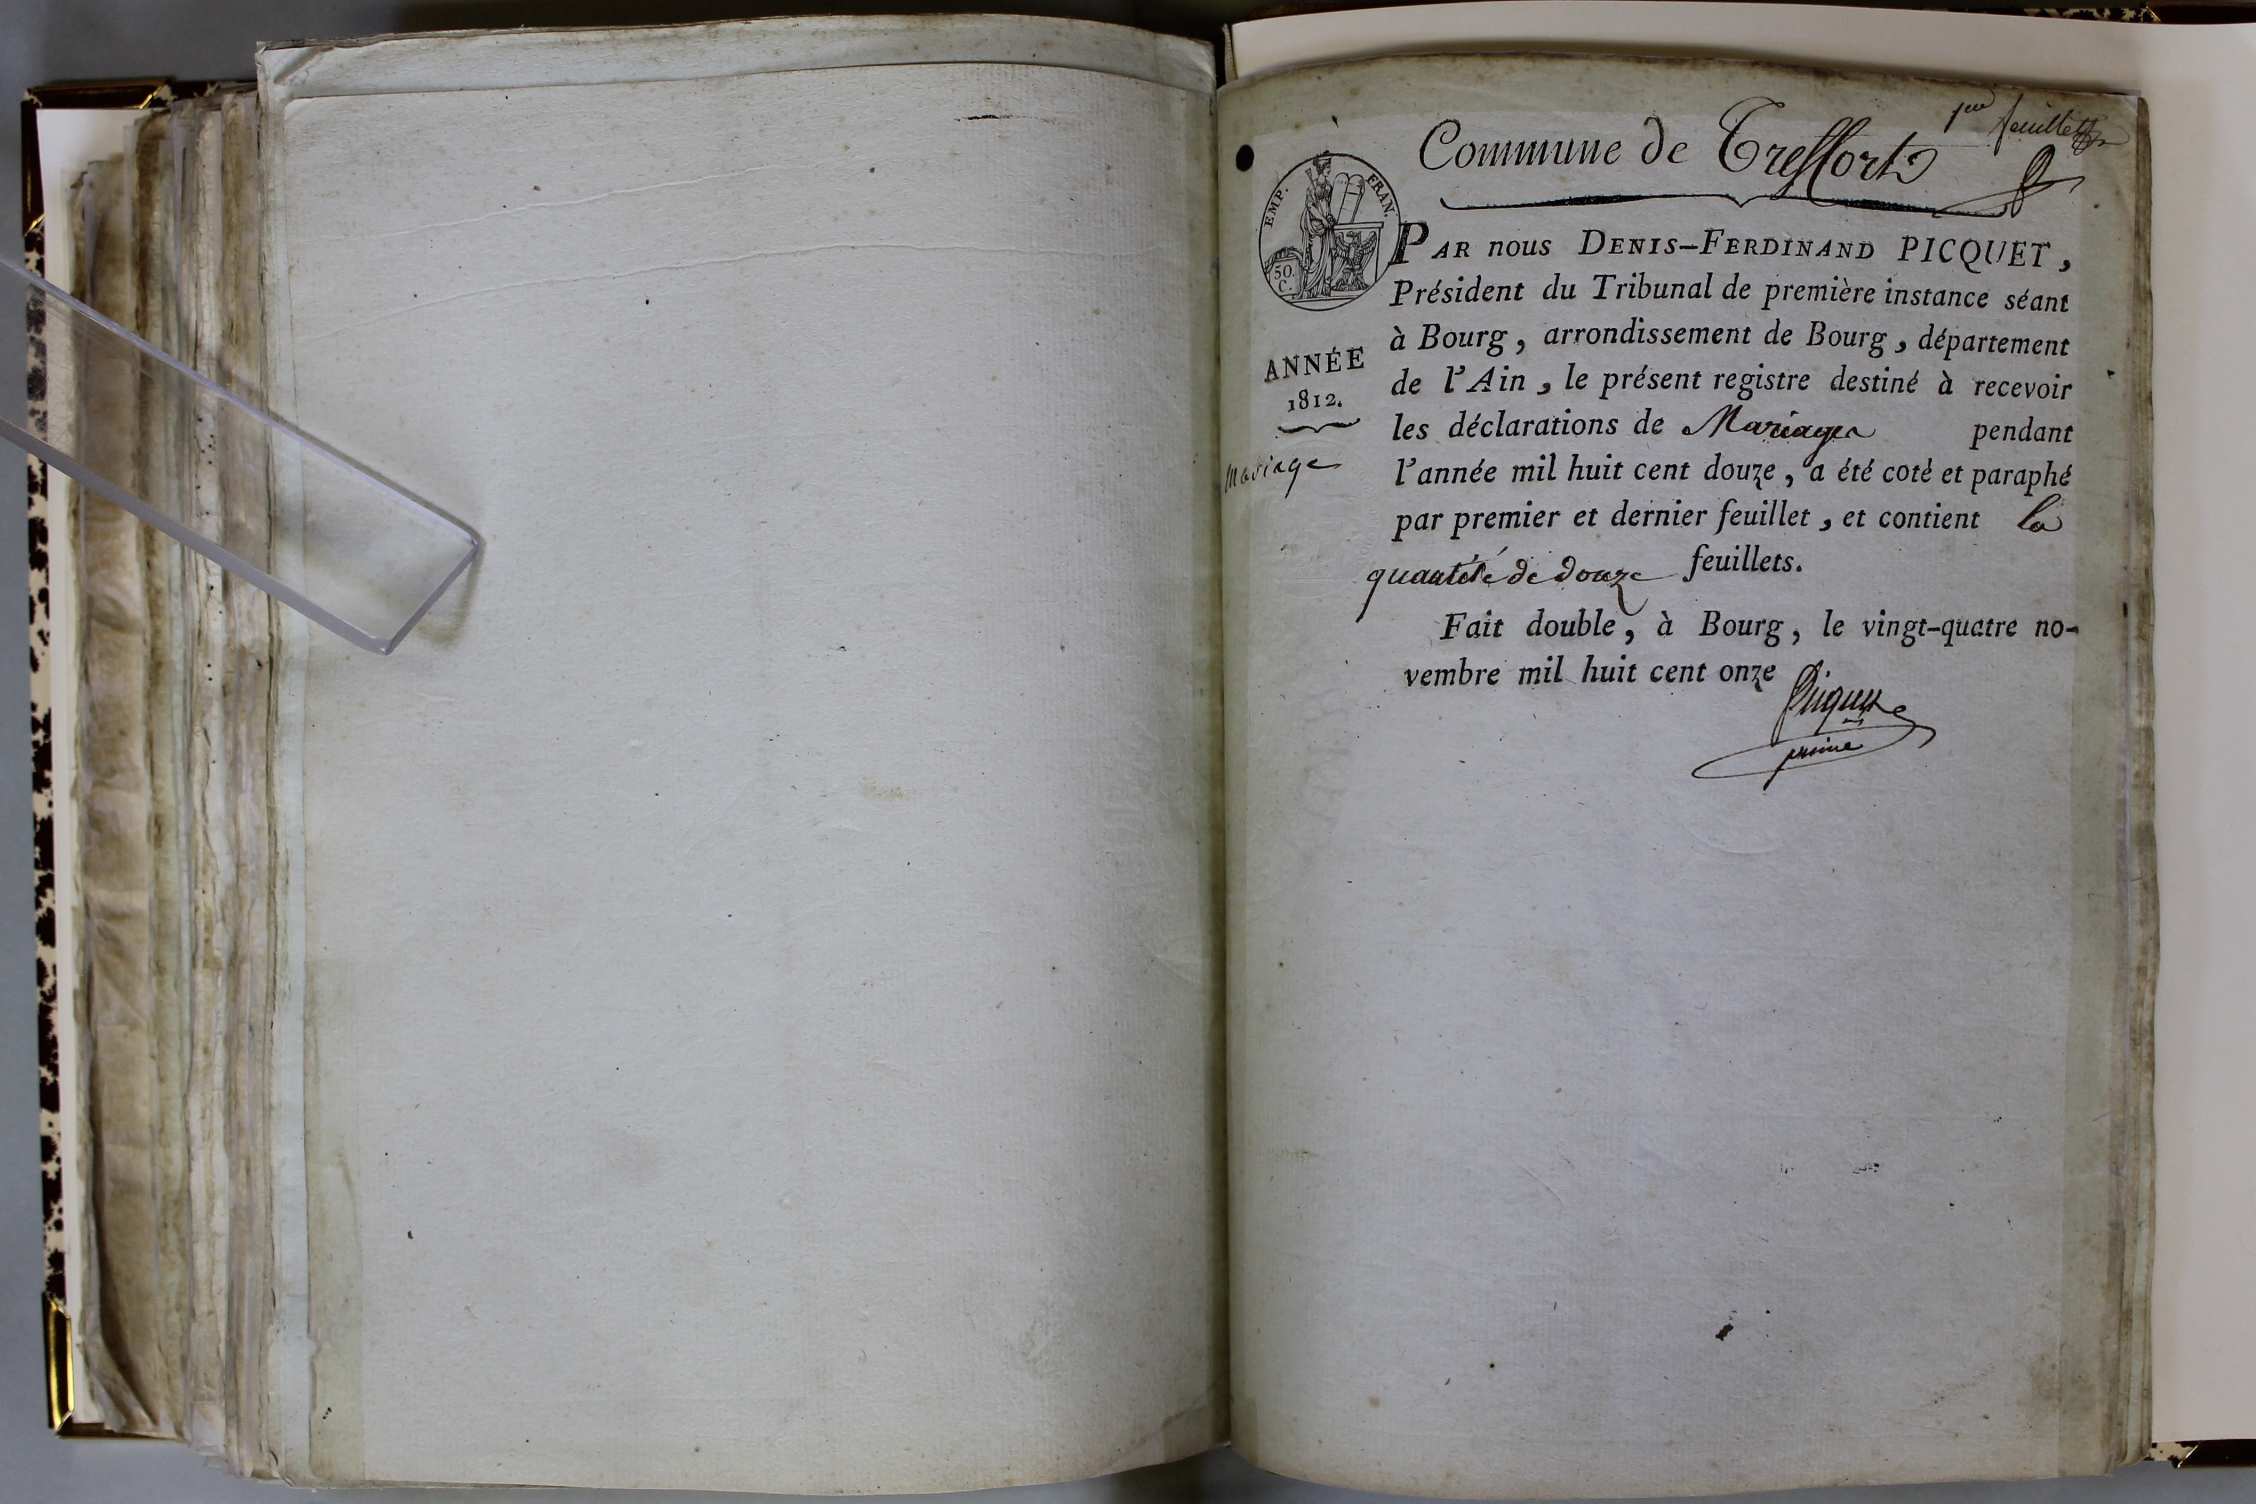 1er feuillet
Commune de Treffort
EMP. FRAN.
50.
C.
PAR nous DENIS-FERDINAND PICQUET,
Président du Tribunal de première instance séant
à Bourg, arrondissement de Bourg, département
de l'Ain, le présent registre destiné à recevoir
les déclarations de Mariages pendant
l'année mil huit cent douze, a été coté et paraphé
par premier et dernier feuillet, et contient la
quantité de douze feuillets.
Fait double, à Bourg, le vingt-quatre no-
vembre mil huit cent onze
Picquet
ANNÉE
1812.
Mariage